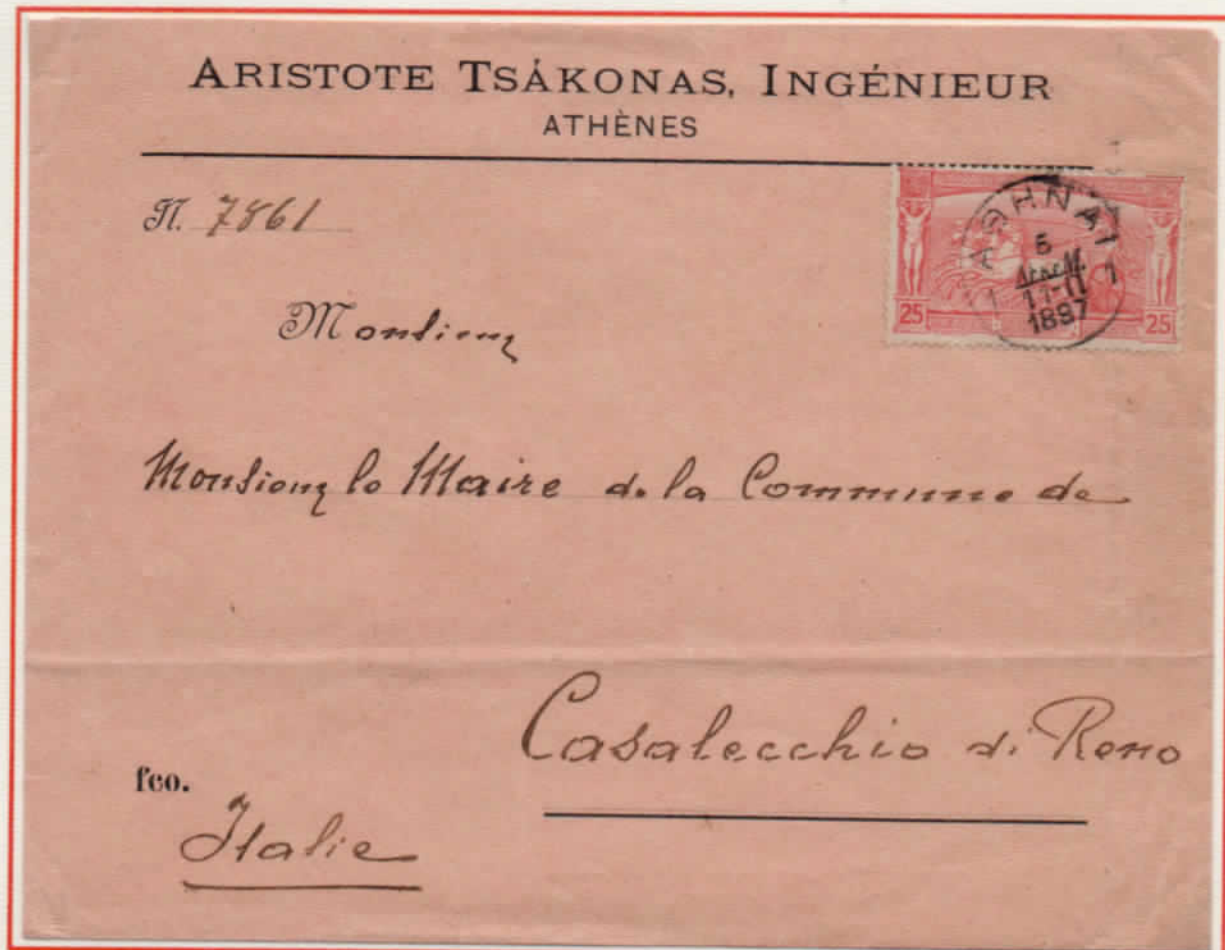 ARISTOTE TSÁKONAS, INGÉNIEUR
ATHÈNES
N. 7861
ΑΘΗΝΑΙ
5
11-11
1
1897
25 25
Monsieur
Monsieur le Maire de la Commune de
Casalecchio di Reno
fco.
Italie